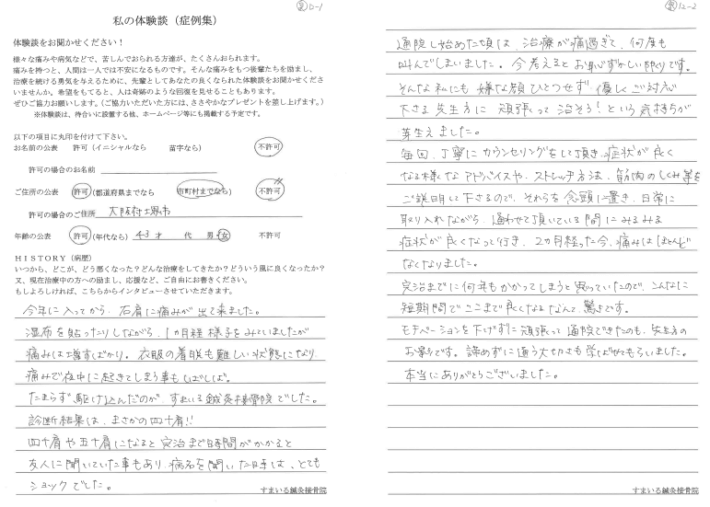 私の体験談（症例集）
体験談をお聞かせください！
様々な痛みや病気などで、苦しんでおられる方達が、たくさんおられます。
痛みを持つと、人間は一人では不安になるものです。そんな痛みをもつ後輩たちを励まし、
治療を続ける勇気を与えるために、先輩としてあなたの良くなられた体験談をお聞かせくださ
いませんか。希望をもてると、人は奇跡のような回復を見せることもあります。
ぜひご協力お願いします。（ご協力いただいた方には、ささやかなプレゼントを差し上げます。）
※体験談は、待合いに設置する他、ホームページ等にも掲載する予定です。
以下の項目に丸印を付けて下さい。
お名前の公表　許可（イニシャルなら　苗字なら）　不許可
許可の場合のお名前
ご住所の公表　許可（都道府県までなら　市町村までなら）　不許可
許可の場合のご住所　大阪府堺市
年齢の公表　許可（年代なら）　43才　代　男・女　不許可
HISTORY（病歴）
いつから、どこが、どう悪くなった？どんな治療をしてきたか？どういう風に良くなったか？
又、現在治療中の方への励まし、応援など、ご自由にお書きください。
もしよろしければ、こちらからインタビューさせていただきます。
今年に入ってから、右肩に痛みが出て来ました。
湿布を貼ったりしながら、1カ月程様子をみていましたが
痛みは増すばかり。衣服の着脱も難しい状態になり
痛みで夜中に起きてしまう事もしばしば。
たまらず駆け込んだのが、すまいる鍼灸接骨院でした。
診断結果は、まさかの四十肩!!
四十肩や五十肩になると完治まで時間がかかると
友人に聞いていた事もあり、病名を聞いた時は、とても
ショックでした。
すまいる鍼灸接骨院
通院し始めた頃は、治療が痛過ぎて、何度も
叫んでしまいました。今考えるとお恥ずかしい限りです。
そんな私にも嫌な顔ひとつせず、優しくご対応
下さる先生方に、頑張って治そう！という気持ちが
芽生えました。
毎回、丁寧にカウンセリングをして頂き、症状が良く
なる様なアドバイスや、ストレッチ方法、筋肉のしくみ等を
ご説明して下さるので、それらを念頭に置き、日常に
取り入れながら、通わせて頂いている間にみるみる
症状が良くなって行き、2カ月経った今、痛みはほとんど
なくなりました。
完治までに何年もかかってしまうと思っていたので、こんなに
短期間でここまで良くなるなんて驚きです。
モチベーションを下げずに頑張って通院できたのも、先生方の
お蔭です。諦めずに通う大切さも学ばせてもらいました。
本当にありがとうございました。
すまいる鍼灸接骨院